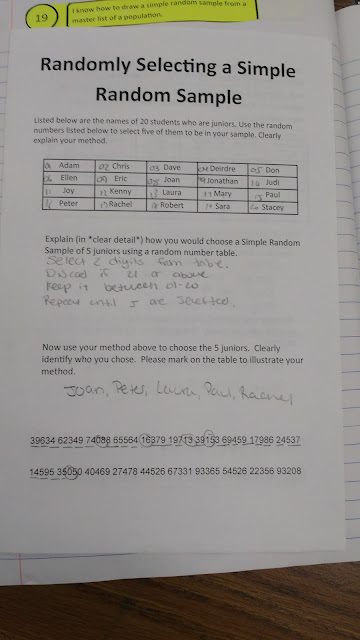 19
I know how to draw a simple random sample from a
master list of a population.
Randomly Selecting a Simple
Random Sample
Listed below are the names of 20 students who are juniors. Use the random
numbers listed below to select five of them to be in your sample. Clearly
explain your method.
01 Adam 02 Chris 03 Dave 04 Deirdre 05 Don
06 Ellen 07 Eric 08 Joan 09 Jonathan 10 Judi
11 Joy 12 Kenny 13 Laura 14 Mary 15 Paul
16 Peter 17 Rachel 18 Robert 19 Sara 20 Stacey
Explain (in *clear detail*) how you would choose a Simple Random
Sample of 5 juniors using a random number table.
Select 2 digits from table.
Discard if 21 or above
Keep it between 01-20
Repeat until 5 are selected.
Now use your method above to choose the 5 juniors. Clearly
identify who you chose. Please mark on the table to illustrate your
method.
Joan, Peter, Laura, Paul, Rachel
39634 62349 74088 65564 16379 19713 39153 69459 17986 24537
14595 35050 40469 27478 44526 67331 93365 54526 22356 93208